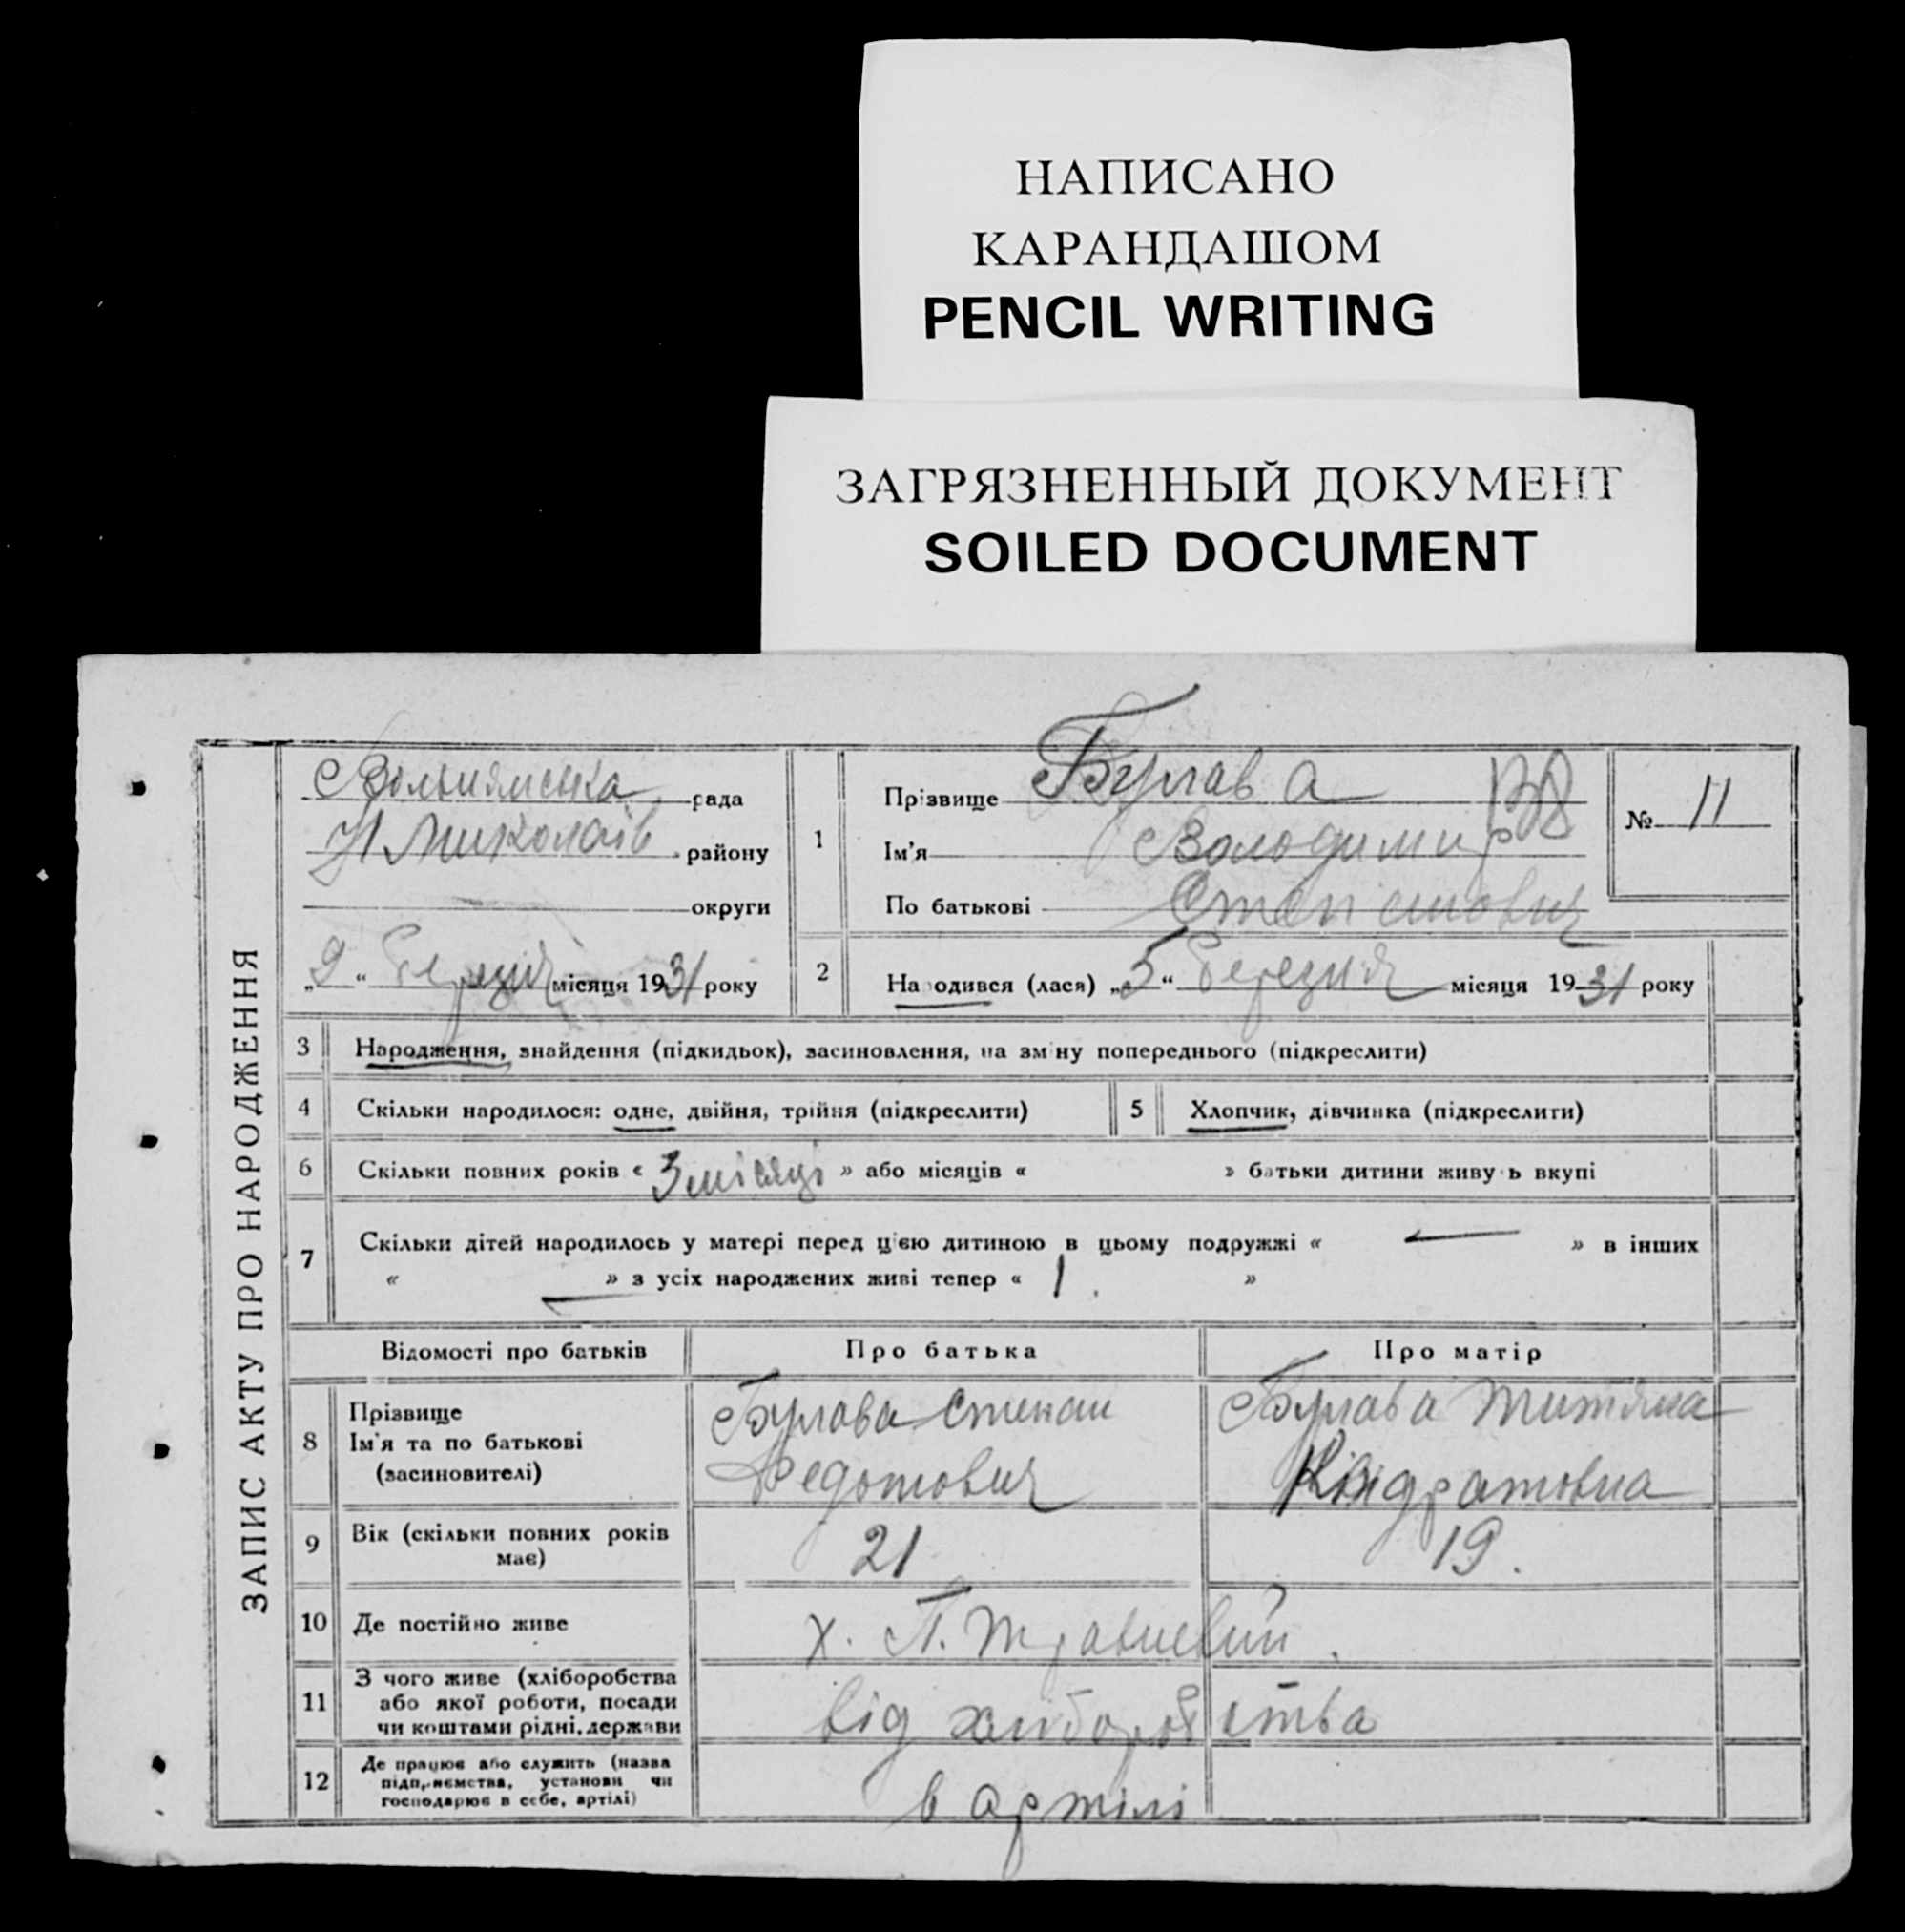 НАПИСАНО
КАРАНДАШОМ
PENCIL WRITING
ЗАГРЯЗНЕННЫЙ ДОКУМЕНТ
SOILED DOCUMENT
ЗАПИС АКТУ ПРО НАРОДЖЕННЯ
рада
Н Миколаїв району
округи
„9“ Березня місяця 1931 року
1
Прізвище Булава
Ім’я Володимир
По батькові Степанович
№ 11
2 Народився (лася) „5“ Березня місяця 1931 року
3 Народження, знайдення (підкидьок), засиновлення, на зміну попереднього (підкреслити)
4 Скільки народилося: одне, двійня, трійня (підкреслити) 5 Хлопчик, дівчинка (підкреслити)
6 Скільки повних років « 3 місяці » або місяців « » батьки дитини живуть вкупі
7 Скільки дітей народилось у матері перед цією дитиною в цьому подружжі « — » в інших
« — » з усіх народжених живі тепер « 1 . »
Відомості про батьків Про батька Про матір
8 Прізвище
Ім’я та по батькові
(засиновителі)
Булава Степан
Федотович
Булава Титяна
Кіндратовна
9 Вік (скільки повних років
має)
21 19.
10 Де постійно живе х. П. Травневий.
11 З чого живе (хліборобства
або якої роботи, посади
чи коштами рідні, держави
від хліборобства
12 Де працює або служить (назва
підприємства, установи чи
господарює в себе, артілі)
в артілі